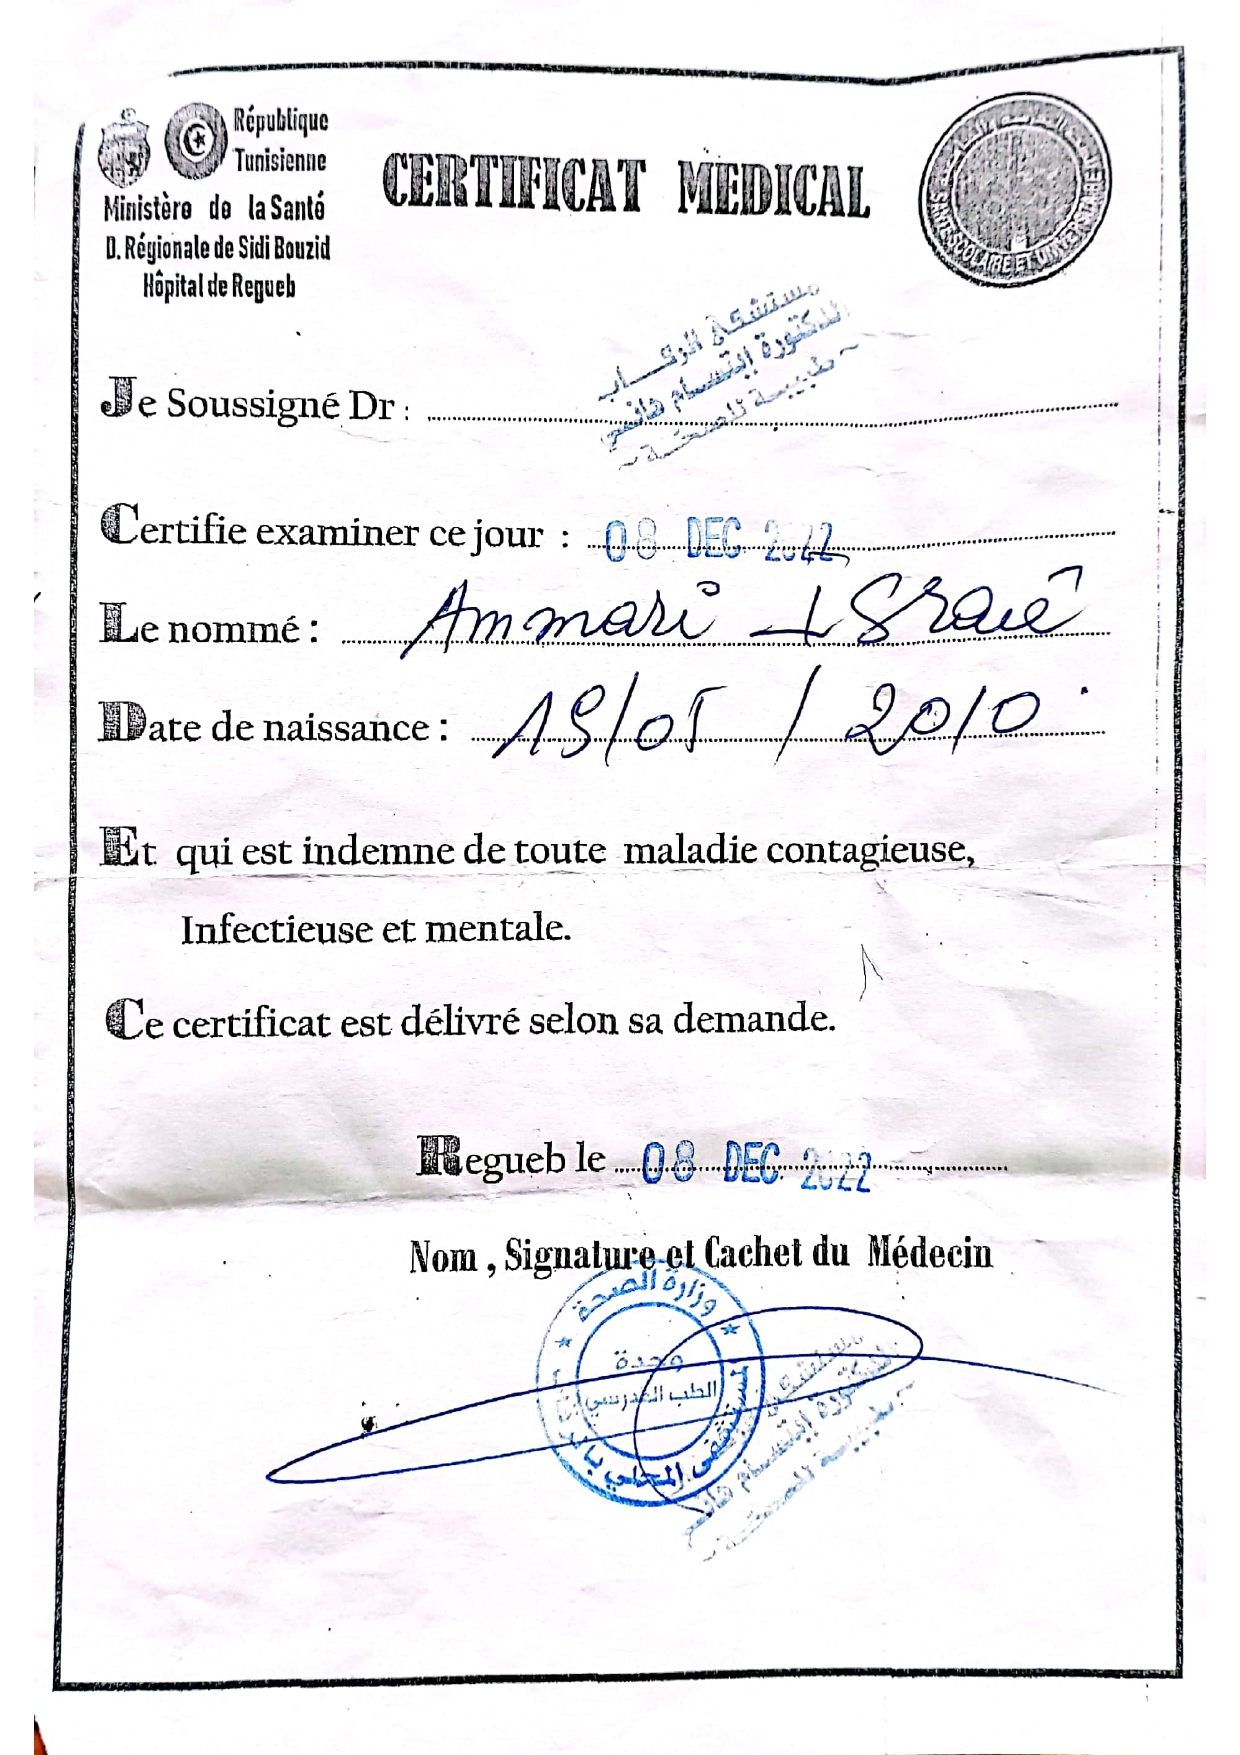 République
Tunisienne
Ministère de la Santé
D. Régionale de Sidi Bouzid
Hôpital de Regueb
CERTIFICAT MEDICAL
SANTE SCOLAIRE ET UNIVERSITAIRE
مستشفى الرقاب
الدكتورة إبتسام هاني
طبيبة للصحة
Je Soussigné Dr :
Certifie examiner ce jour : 08 DEC 2022
Le nommé : Ammari Israê
Date de naissance : 19/05/2010
Et qui est indemne de toute maladie contagieuse,
Infectieuse et mentale.
Ce certificat est délivré selon sa demande.
Regueb le 08 DEC. 2022
Nom , Signature et Cachet du Médecin
وزارة الصحة
وحدة
الطب المدرسي
المستشفى المحلي
مستشفى
الدكتورة إبتسام هاني
طبيبة للصحة